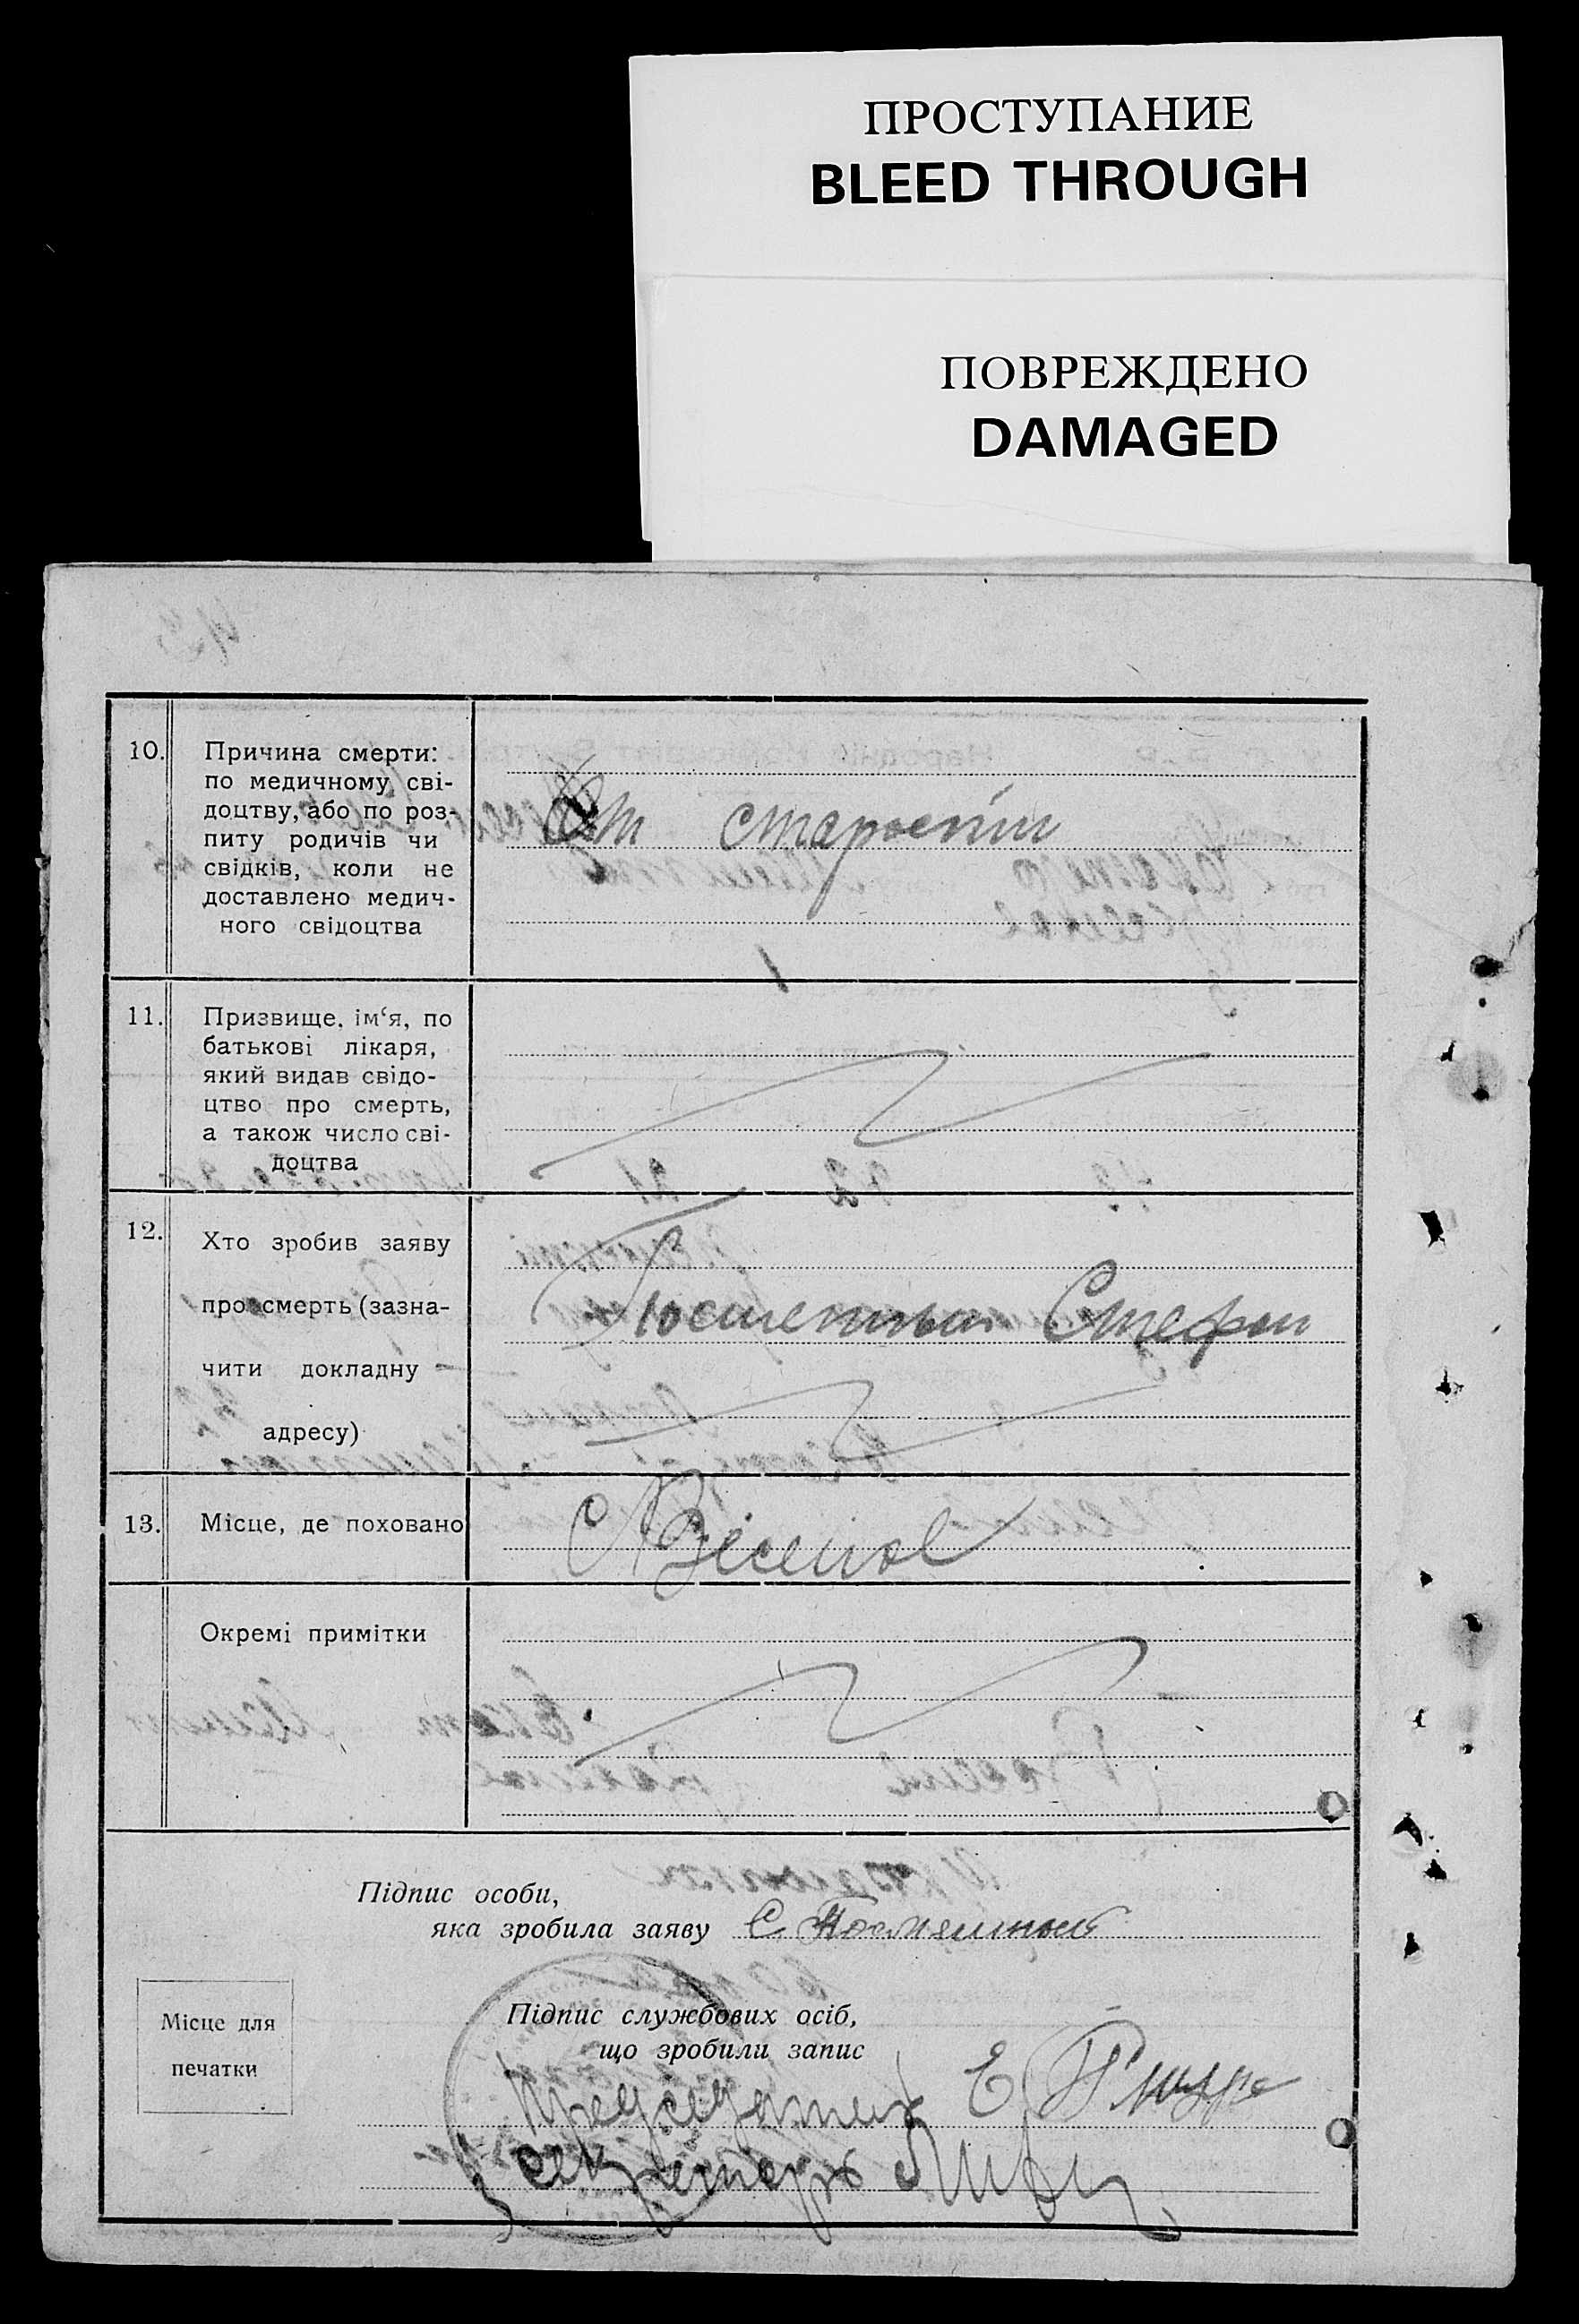 ПРОСТУПАНИЕ
BLEED THROUGH
ПОВРЕЖДЕНО
DAMAGED
10. Причина смерти:
по медичному сві-
доцтву, або по роз-
питу родичів чи
свідків, коли не
доставлено медич-
ного свідоцтва
От старости
11. Призвище, ім‘я, по
батькові лікаря,
який видав свідо-
цтво про смерть,
а також число сві-
доцтва
12. Хто зробив заяву
про смерть (зазна-
чити докладну
адресу)
Стефан
13. Місце, де поховано
Окремі примітки
Підпис особи,
яка зробила заяву С.
Місце для
печатки
Підпис службових осіб,
що зробили запис
Председатель Е
Секретарь